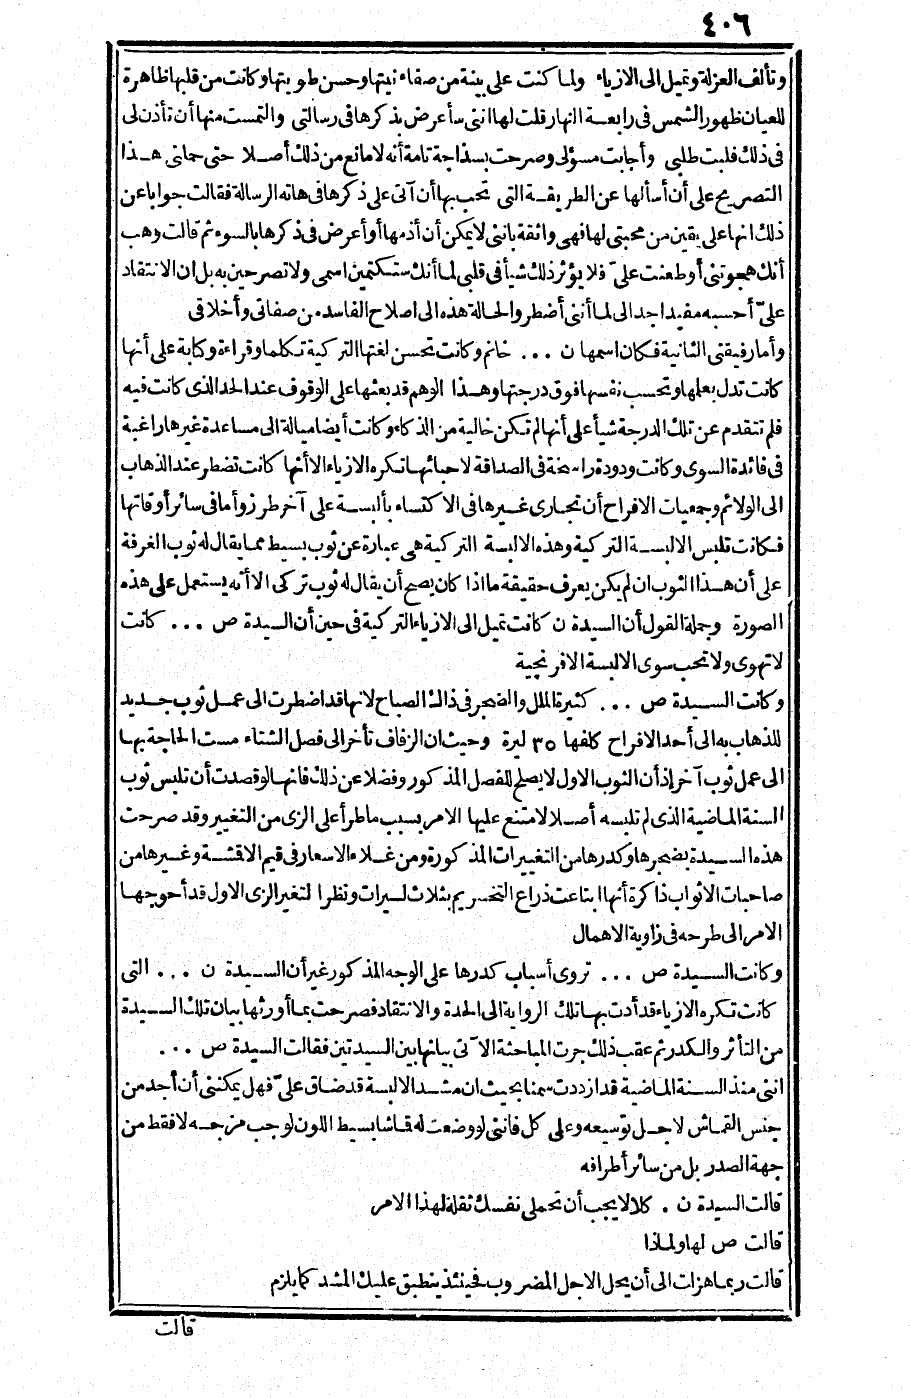 ٤٠٦
وتألف العزلة وتميل الى الازياء ولما كنت على بينة من صفاء نيتها وحسن طويتها وكانت من قلبها ظاهرة
للعيان ظهور الشمس فى رابعة النهار قلت لها اننى سأعرض بذكرها فى رسالتى والتمست منها أن تأذن لى
فى ذلك فلبت طلبى وأجابت مسؤلى وصرحت بسذاجة تامة أنه لا مانع من ذلك أصلا حتى حملنى هذا
التصريح على أن أسألها عن الطريقة التى تحب بها أن آتى على ذكرها فى هاته الرسالة فقالت جوابا عن
ذلك انها على يقين من محبتى لها فهى واثقة باننى لا يمكن أن أذمها أو أعرض فى ذكرها بالسوء ثم قالت وهب
أنك هجوتنى أو طعنت علىّ فلا يؤثر ذلك شيأ فى قلبى لما أنك ستكتمين اسمى ولا تصرحين به بل ان الانتقاد
علىّ أحسبه مفيدا جد الى لما أننى أضطر والحالة هذه الى اصلاح الفاسد من صفاتى وأخلاقى
وأما رفيقتى الثانية فكان اسمها ن ... خانم وكانت تحسن لغتها التركية تكلما وقراءة وكتابة على أنها
كانت تدل بعلمها وتحسب نفسها فوق درجتها وهذا الوهم قد بعثها على الوقوف عند الحد الذى كانت فيه
فلم تتقدم عن تلك الدرجة شيأ على أنها لم تكن خالية من الذكاء وكانت أيضا ميالة الى مساعدة غيرها راغبة
فى فائدة السوى وكانت ودودة راسخة فى الصداقة لاحبائها تكره الازياء الا أنها كانت تضطر عند الذهاب
الى الولائم وجمعيات الافراح أن تجارى غيرها فى الاكتساء بألبسة على آخر طرز وأما فى سائر أوقاتها
فكانت تلبس الالبسة التركية وهذه الالبسة التركية هى عبارة عن ثوب بسيط مما يقال له ثوب الغرفة
على أن هذا الثوب ان لم يكن يعرف حقيقة ما اذا كان يصح أن يقال له ثوب تركى الا أنه يستعمل على هذه
الصورة وجملة القول أن السيدة ن كانت تميل الى الازياء التركية فى حين أن السيدة ص ... كانت
لا تهوى ولا تحب سوى الالبسة الافرنجية
وكانت السيدة ص ... كثيرة الملل والضجر فى ذاك الصباح لانها قد اضطرت الى عمل ثوب جديد
للذهاب به الى أحد الافراح كلفها ٣٥ ليرة وحيث ان الزفاف تأخر الى فصل الشتاء مست الحاجة بها
الى عمل ثوب آخر إذ أن الثوب الاول لا يصلح للفصل المذكور وفضلا عن ذلك فانها لو قصدت أن تلبس ثوب
السنة الماضية الذى لم تلبسه أصلا لامتنع عليها الامر بسبب ما طرأ على الزى من التغيير وقد صرحت
هذه السيدة بضجرها وكدرها من التغييرات المذكورة ومن غلاء الاسعار فى قيم الاقشة وغيرها من
صاحبات الاثواب ذاكرة أنها ابتاعت ذراع التخريم بثلاث ليرات ونظرا لتغير الزى الاول قد أحوجها
الامر الى طرحه فى زاوية الاهمال
وكانت السيدة ص ... تروى أسباب كدرها على الوجه المذكور غير أن السيدة ن ... التى
كانت تكره الازياء قد أدت بها تلك الرواية الى الحدة والانتقاد فصرحت بما أورثها بيان تلك السيدة
من التأثر والكدر ثم عقب ذلك جرت المباحثة الآتى بيانها بين السيدتين فقالت السيدة ص ...
اننى منذ السنة الماضية قد ازددت سمنا بحيث ان مشد الالبسة قد ضاق علىّ فهل يمكننى أن أجد من
جنس القماش لاجل توسيعه وعلى كل فاننى لو وضعت له قماشا بسيط اللون لوجب مزجه لا فقط من
جهة الصدر بل من سائر أطرافه
قالت السيدة ن . كلا لا يجب أن تحملى نفسك ثقلة لهذا الامر
قالت ص لها ولماذا
قالت ربما هزلت الى أن يحل الاجل المضروب فينئذ ينطبق عليك المشد كما يلزم
قالت